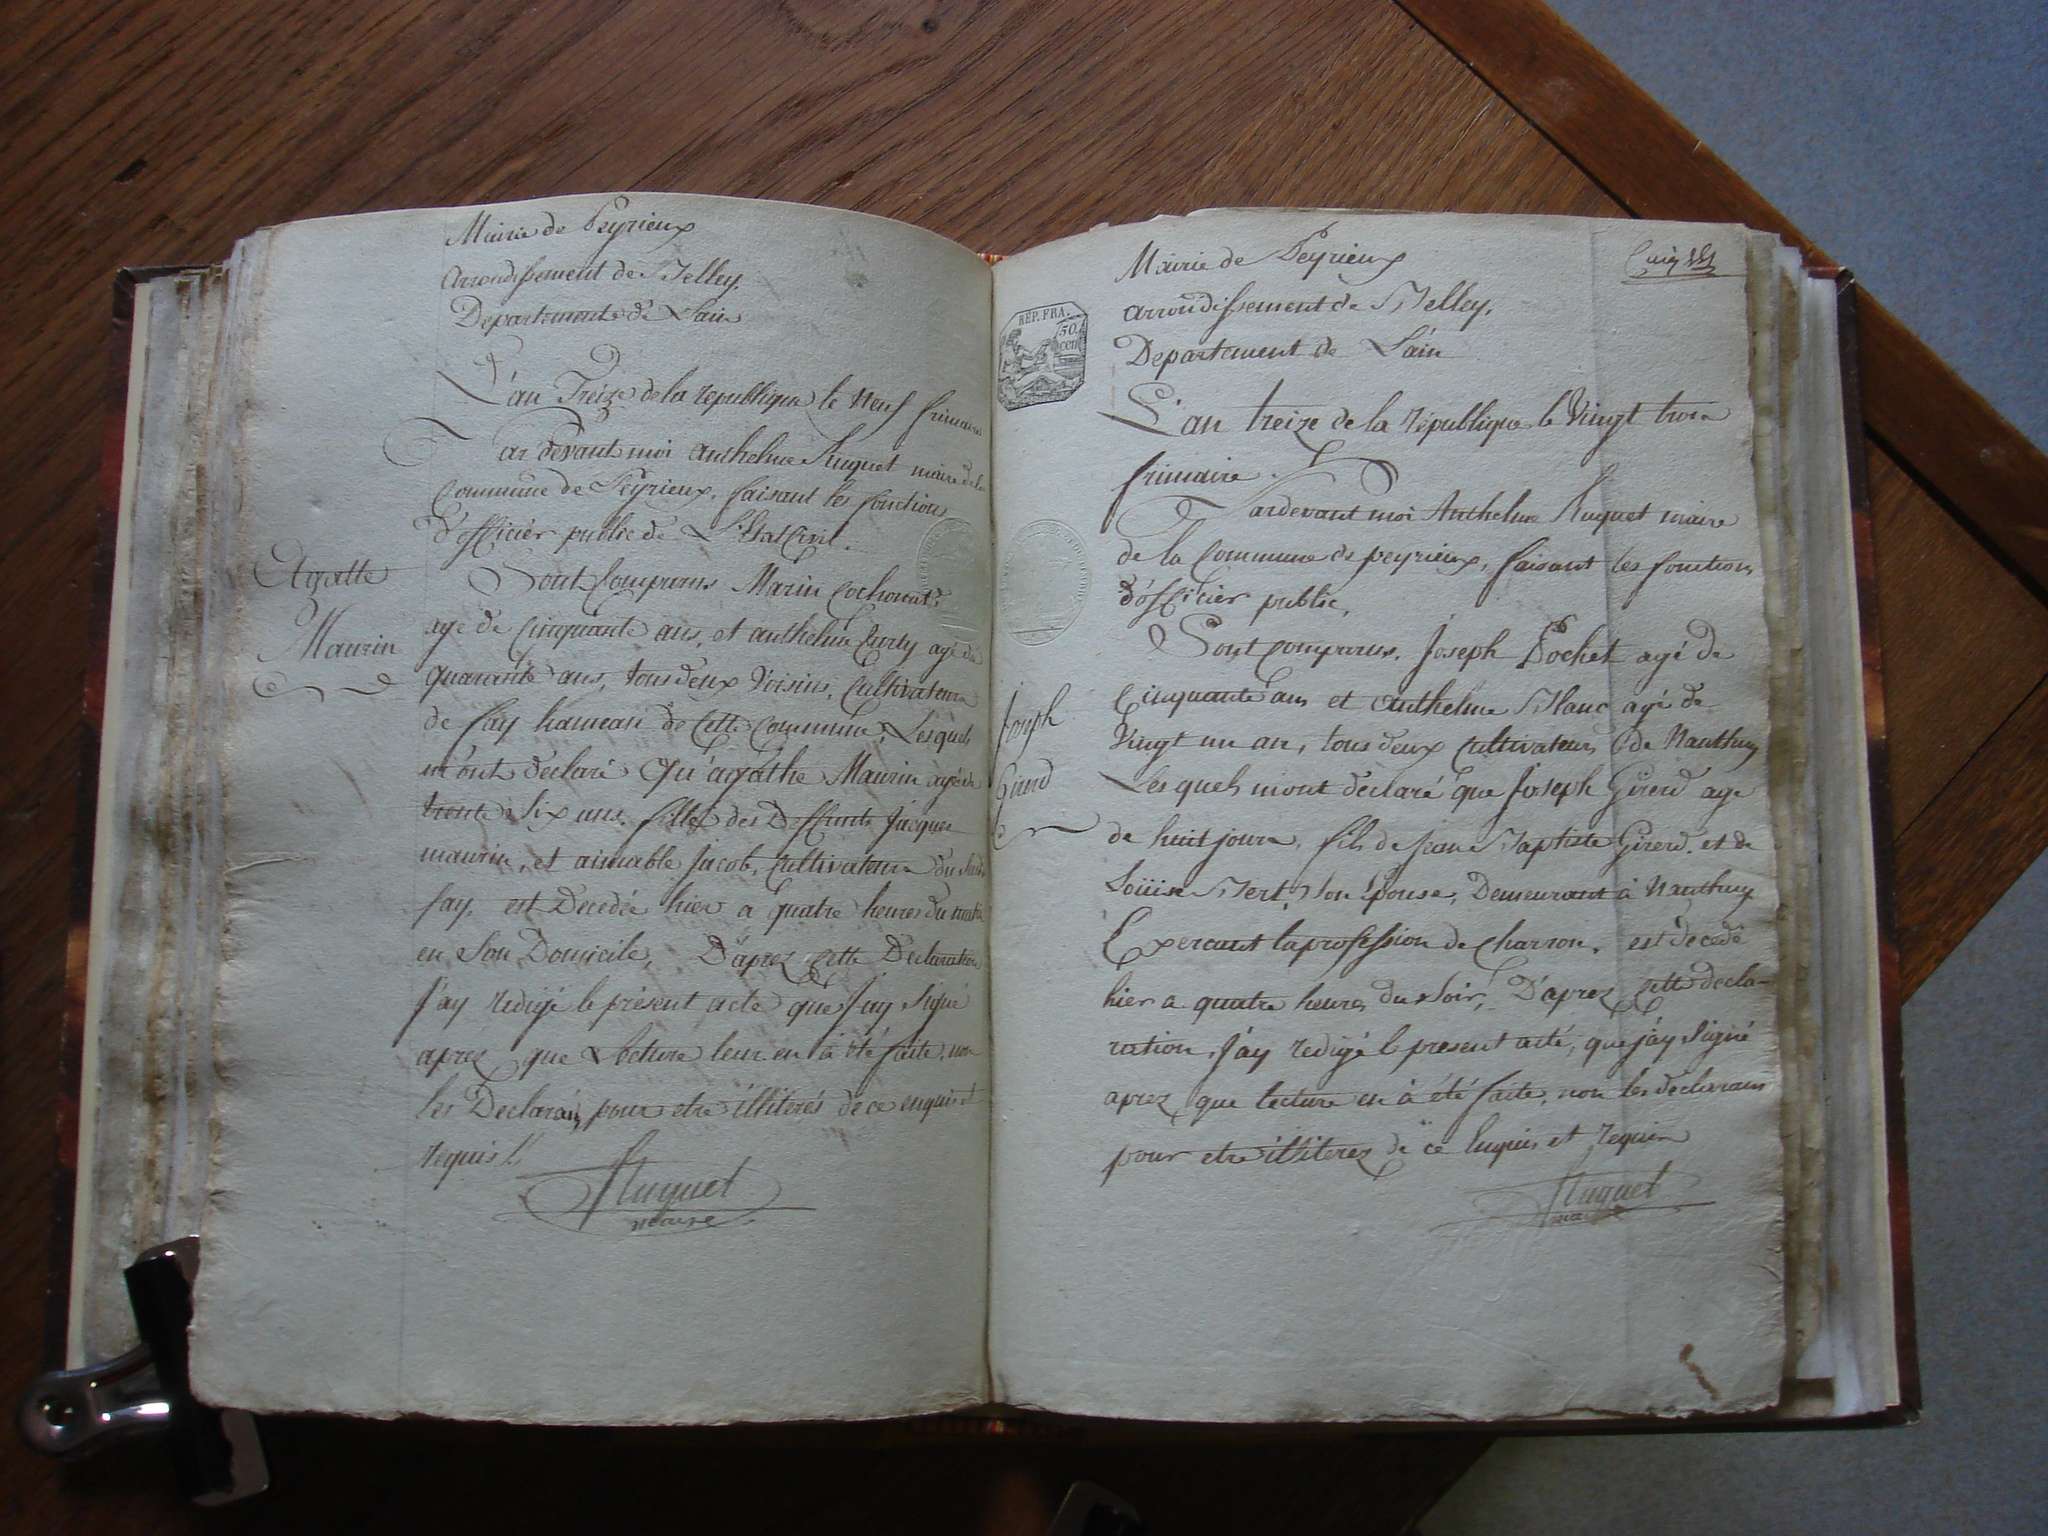 Mairie de Peyrieux
arrondissement de Belley.
Departement de Lain
L'an Treize de la republique le neuf frimaire
Par devant moi anthelme Huguet maire de la
Commune de Peyrieux, faisant les fonctions
d'officier public de L'Etat Civil.
Sont Comparus Marin Cochonat
age de Cinquante ans, et anthelme Curty agé de
quarante ans, tous deux Voisins, Cultivateurs
de fay hameau de Cette Commune, Lesquels
m'ont declaré Qu'agathe Maurin agée de
trente Six ans, fille des Deffunts Jacques
maurin, et aimable Jacob, Cultivateurs du Susdit
fay, est Decedée hier a quatre heures du matin
en Son Domicile, D'aprez Cette Declaration
J'ay redigé le présent acte que J'ay Signé
aprez que Lecture leur en à été faite, non
les Declarans pour etre illiterés de ce enquis et
requis.
Huguet
maire
Agatte
Maurin
Cinq
Mairie de Peyrieux
arrondissement de Belley,
Departement de L'ain
REP. FRA.
50
cent
L'an treize de la république le Vingt trois
frimaire.
Pardevant moi Anthelme Huguet maire
de la Commune de peyrieux, faisant les fonctions
d'officier public,
Sont comparus, Joseph Pochet agé de
Cinquante ans et Anthelme Blanc agé de
Vingt un an, tous deux Cultivateurs de Nanthuy
Les quels m'ont declaré que Joseph Girerd age
de huit jours, fils de Jean Baptiste Girerd, et de
Loüise Bert, Son épouse, Demeurant à Nanthuy
Exercant la profession de Charron, est decedé
hier a quatre heures du Soir, D'aprez cette decla-
ration, J'ay redigé le present acte, que j'ay Signé
aprez que lecture en à été faite, non les declarans
pour etre illiterez de ce Enquis et Requis
Huguet
maire
Joseph
Girerd